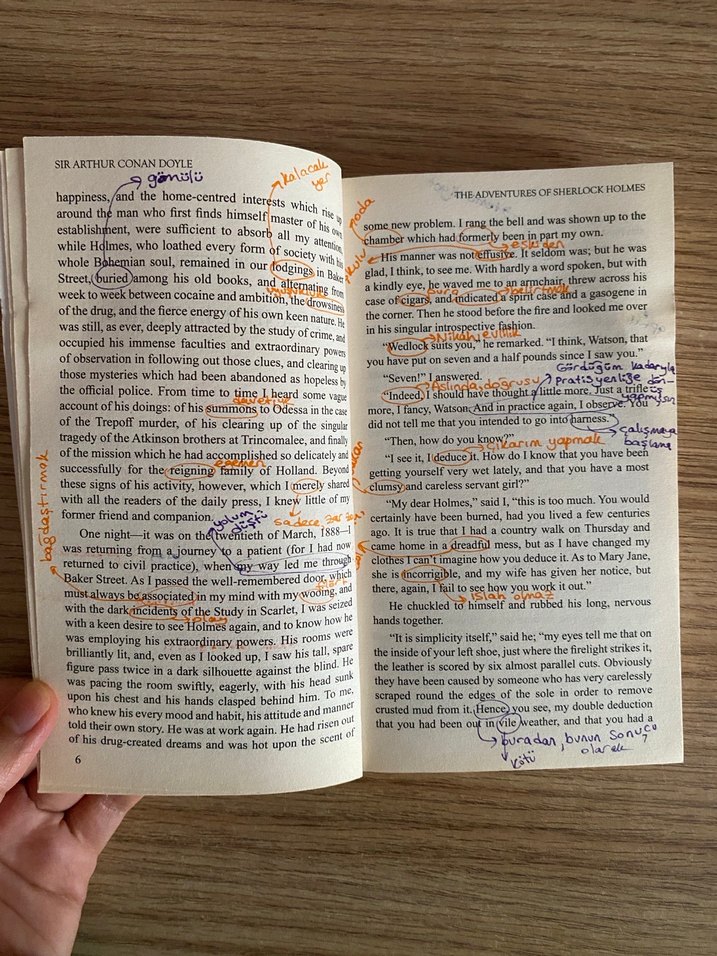 SIR ARTHUR CONAN DOYLE
gömülü
kalacak
yer
happiness, and the home-centred interests which rise up
around the man who first finds himself master of his own
establishment, were sufficient to absorb all my attention,
while Holmes, who loathed every form of society with his
whole Bohemian soul, remained in our lodgings in Baker
Street, buried among his old books, and alternating from
week to week between cocaine and ambition, the drowsiness
of the drug, and the fierce energy of his own keen nature. He
was still, as ever, deeply attracted by the study of crime, and
occupied his immense faculties and extraordinary powers
of observation in following out those clues, and clearing up
those mysteries which had been abandoned as hopeless by
the official police. From time to time I heard some vague
davetiye
account of his doings: of his summons to Odessa in the case
of the Trepoff murder, of his clearing up of the singular
tragedy of the Atkinson brothers at Trincomalee, and finally
of the mission which he had accomplished so delicately and
egemen
successfully for the reigning family of Holland. Beyond
these signs of his activity, however, which I merely shared
with all the readers of the daily press, I knew little of my
former friend and companion.
sadece
yolum
düştü
bağdaştırmak
One night—it was on the twentieth of March, 1888—I
was returning from a journey to a patient (for I had now
returned to civil practice), when my way led me through
Baker Street. As I passed the well-remembered door, which
must always be associated in my mind with my wooing, and
with the dark incidents of the Study in Scarlet, I was seized
olay
with a keen desire to see Holmes again, and to know how he
was employing his extraordinary powers. His rooms were
brilliantly lit, and, even as I looked up, I saw his tall, spare
figure pass twice in a dark silhouette against the blind. He
was pacing the room swiftly, eagerly, with his head sunk
upon his chest and his hands clasped behind him. To me,
who knew his every mood and habit, his attitude and manner
told their own story. He was at work again. He had risen out
of his drug-created dreams and was hot upon the scent of
6
THE ADVENTURES OF SHERLOCK HOLMES
oda
some new problem. I rang the bell and was shown up to the
chamber which had formerly been in part my own.
eskiden
His manner was not effusive. It seldom was; but he was
glad, I think, to see me. With hardly a word spoken, but with
a kindly eye, he waved me to an armchair, threw across his
puro
belirtmek
case of cigars, and indicated a spirit case and a gasogene in
the corner. Then he stood before the fire and looked me over
in his singular introspective fashion.
Nikah, evlilik
“Wedlock suits you,” he remarked. “I think, Watson, that
you have put on seven and a half pounds since I saw you.”
Gördüğüm kadarıyla
pratisyenliğe dön-
müşsün
“Seven!” I answered.
Aslında, doğrusu
“Indeed, I should have thought a little more. Just a trifle
more, I fancy, Watson. And in practice again, I observe. You
did not tell me that you intended to go into harness.”
çalışmaya
başlama
“Then, how do you know?”
çıkarım yapmak
“I see it, I deduce it. How do I know that you have been
getting yourself very wet lately, and that you have a most
clumsy and careless servant girl?”
“My dear Holmes,” said I, “this is too much. You would
certainly have been burned, had you lived a few centuries
ago. It is true that I had a country walk on Thursday and
came home in a dreadful mess, but as I have changed my
clothes I can’t imagine how you deduce it. As to Mary Jane,
she is incorrigible, and my wife has given her notice, but
there, again, I fail to see how you work it out.”
ıslah olmaz
He chuckled to himself and rubbed his long, nervous
hands together.
“It is simplicity itself,” said he; “my eyes tell me that on
the inside of your left shoe, just where the firelight strikes it,
the leather is scored by six almost parallel cuts. Obviously
they have been caused by someone who has very carelessly
scraped round the edges of the sole in order to remove
crusted mud from it. Hence, you see, my double deduction
that you had been out in vile weather, and that you had a
buradan, bunun sonucu
olarak
kötü